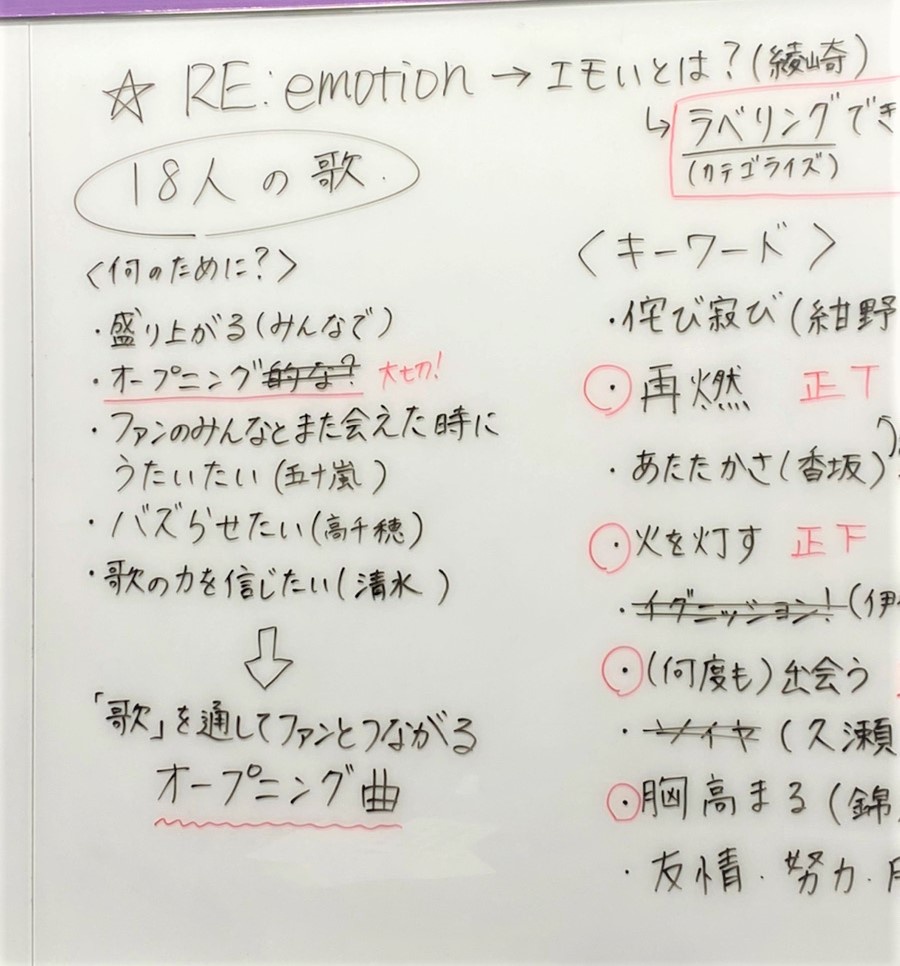 ☆ RE:emotion → エモいとは?(綾崎)
↳ ラベリングでき
(カテゴライズ)
18人の歌.
<何のために?>
・盛り上がる(みんなで)
・オープニング的な? 大切!
・ファンのみんなとまた会えた時に
うたいたい(五十嵐)
・バズらせたい(高千穂)
・歌の力を信じたい(清水)
⇩
「歌」を通してファンとつながる
オープニング曲
<キーワード>
・侘び寂び(紺野
・再燃 正丅
・あたたかさ(香坂)
・火を灯す 正下
・イグニッション!(伊
・(何度も)出会う
・ソイヤ(久瀬
・胸高まる(錦
・友情.努力.